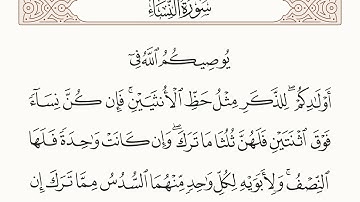 سُورَةُ النِّسَاءِ
يُوصِيكُمُ ٱللَّهُ فِىٓ
أَوۡلَٰدِكُمۡۖ لِلذَّكَرِ مِثۡلُ حَظِّ ٱلۡأُنثَيَيۡنِۚ فَإِن كُنَّ نِسَآءٗ
فَوۡقَ ٱثۡنَتَيۡنِ فَلَهُنَّ ثُلُثَا مَا تَرَكَۖ وَإِن كَانَتۡ وَٰحِدَةٗ فَلَهَا
ٱلنِّصۡفُۚ وَلِأَبَوَيۡهِ لِكُلِّ وَٰحِدٖ مِّنۡهُمَا ٱلسُّدُسُ مِمَّا تَرَكَ إِن